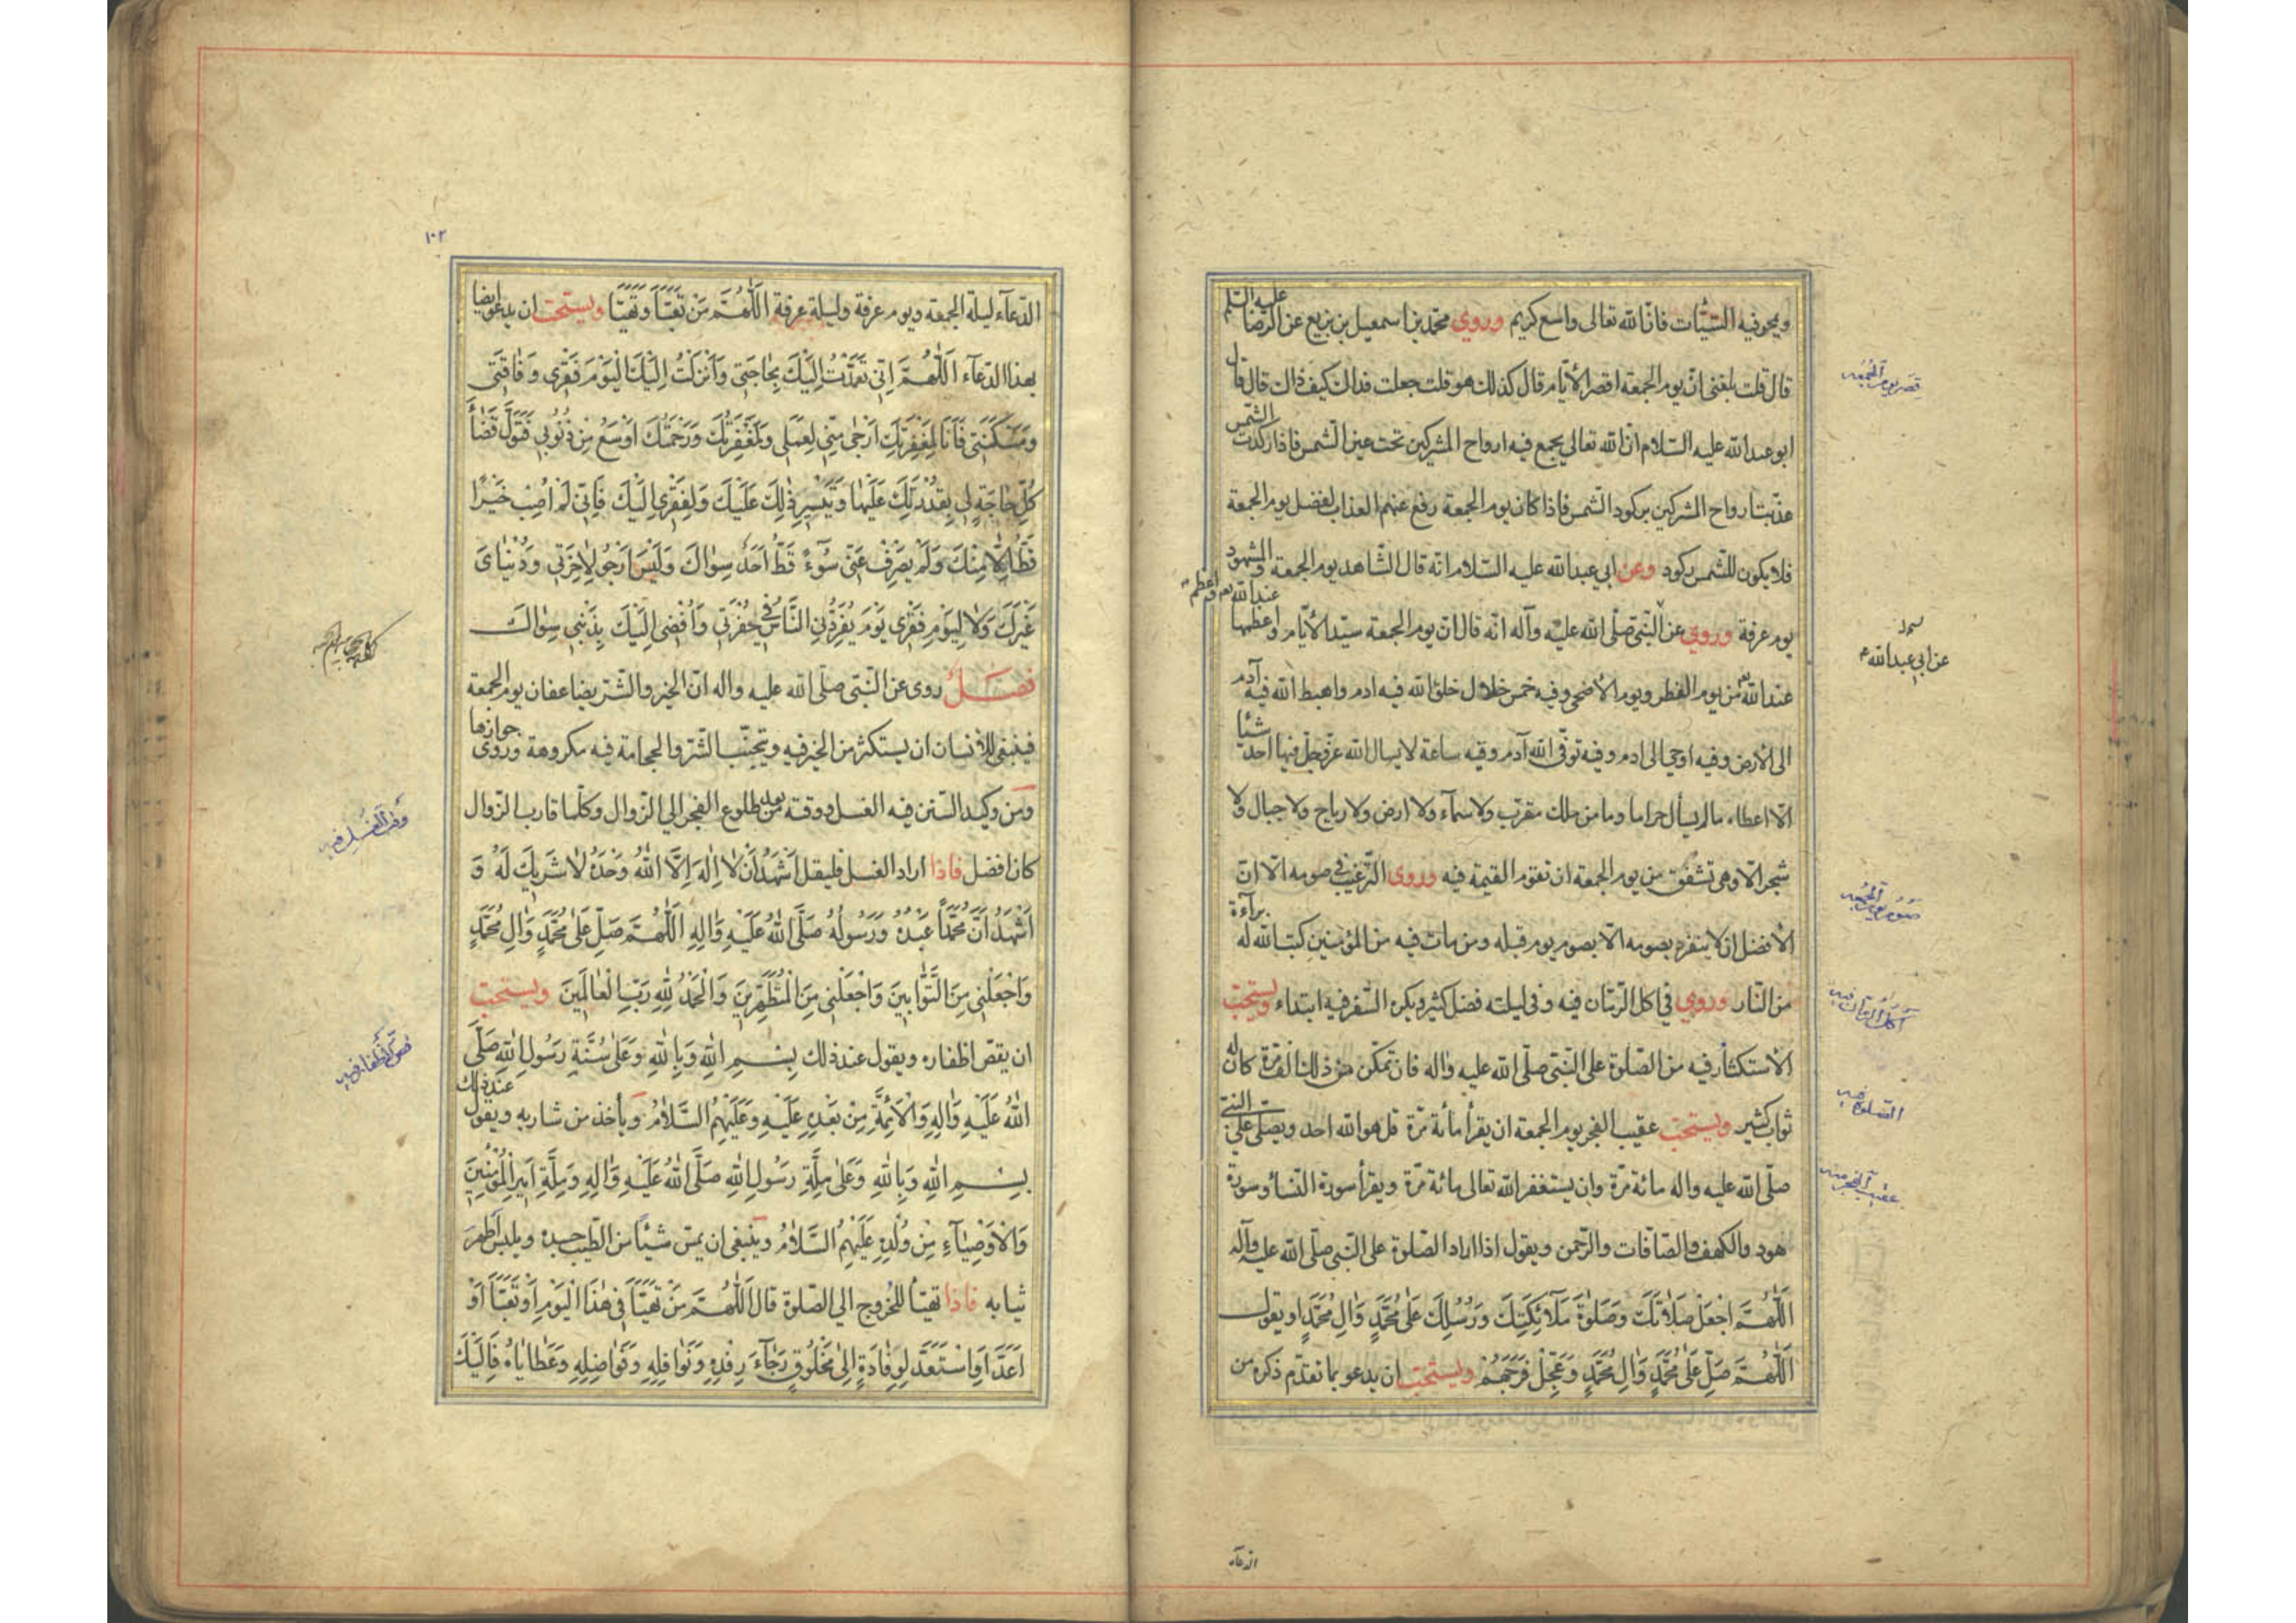 ويمحو فيه السّيّئات فانّ الله تعالى واسع كريم وروى محمّد بن اسمعيل بن بزيع عن الرّضا عليه السّلم
قال قلت بلغنى انّ يوم الجمعة اقصر الأيّام قال كذلك هو قلت جعلت فداك كيف ذاك قال قال
ابو عبد الله عليه السّلام انّ الله تعالى يجمع فيه ارواح المشركين تحت عين الشّمس فاذا ركدت الشّمس
عذّبت ارواح المشركين بركود الشّمس فاذا كان يوم الجمعة رفع عنهم العذاب لفضل يوم الجمعة
فلا يكون للشّمس ركود وعن ابي عبد الله عليه السّلام انّه قال الشّاهد يوم الجمعة والمشهود
يوم عرفة وروى عن النّبىّ صلّى الله عليه وآله انّه قال انّ يوم الجمعة سيّد الأيّام واعظمها عند الله واعظم
عند الله من يوم الفطر ويوم الأضحى وفيه خمس خلال خلق الله فيه ادم واهبط الله فيه آدم
الى الأرض وفيه اوحى الى ادم وفيه توفّى الله آدم وفيه ساعة لا يسال الله عزّ وجلّ فيها احد شيئا
الّا اعطاه ما لم يسأل حراما وما من ملك مقرّب ولا سمآء ولا ارض ولا رياح ولا جبال ولا
شجر الّا وهى تشفق من يوم الجمعة ان تقوم القيمة فيه وروى التّرغيب في صومه الّا انّ
الأفضل ان لا ينفرد بصومه الّا بصوم يوم قبله ومن مات فيه من المؤمنين كتب الله له برآءة
من النّار وروى في اكل الرّمّان فيه وفى ليلته فضل كثير ويكره السّفر فيه ابتداء ويستحبّ
الأستكثار فيه من الصّلوة على النّبىّ صلّى الله عليه واله فان تمكّن من ذلك الف مرّة كان له
ثواب كثير ويستحبّ عقيب الفجر يوم الجمعة ان يقرأ مائة مرّة قل هو الله احد ويصلّى على النبىّ
صلّى الله عليه واله مائة مرّة وان يستغفر الله تعالى مائة مرّة ويقرأ سورة النّسا وسورة
هود والكهف والصّافات والرّحمن ويقول اذا اراد الصّلوة على النّبى صلّى الله عليه وآله
اَللّٰهُمَّ اجْعَلْ صَلَاتَكَ وَصَلَوةَ مَلَآئِكَتِكَ وَرُسُلِكَ عَلٰى مُحَمَّدٍ وَاٰلِ مُحَمَّدٍ او يقول
اَللّٰهُمَّ صَلِّ عَلٰى مُحَمَّدٍ وَاٰلِ مُحَمَّدٍ وَعَجِّلْ فَرَجَهُمْ ويستحبّ ان يدعو بما تقدّم ذكره من
الدعآء
قصر يوم الجمعه
عن ابي عبد الله
صوم يوم الجمعه
اكل الرمان فيه
الصلوة فيه
عقيب الفجر فيه
١٠٢
الدّعآء ليلة الجمعة ويوم عرفة وليلة عرفة اَللّٰهُمَّ مَنْ تَعَبَّأَ وَتَهَيَّأَ ويستحبّ ان يدعو ايضا
بهذا الدّعآء اَللّٰهُمَّ اِنّى تَعَمَّدْتُ اِلَيْكَ بِحٰاجَتى وَاَنْزَلْتُ اِلَيْكَ الْيَوْمَ فَقْرى وَفٰاقَتى
وَمَسْكَنَتى فَاَنَا لِمَغْفِرَتِكَ اَرْجٰى مِنّى لِعَمَلى وَلَمَغْفِرَتُكَ وَرَحْمَتُكَ اَوْسَعُ مِنْ ذُنُوبى فَتَوَلَّ قَضٰآءَ
كُلِّ حٰاجَةٍ لى بِقُدْرَتِكَ عَلَيْهٰا وَتَيْسيرِ ذٰلِكَ عَلَيْكَ وَلِفَقْرى اِلَيْكَ فَاِنّى لَمْ اُصِبْ خَيْرًا
قَطُّ اِلّٰا مِنْكَ وَلَمْ يَصْرِفْ عَنّى سُوٓءً قَطُّ اَحَدٌ سِوٰاكَ وَلَيْسَ اَرْجُو لِاٰخِرَتى وَدُنْيٰاىَ
غَيْرَكَ وَلٰا لِيَوْمِ فَقْرى يَوْمَ يُفْرِدُنِى النّٰاسُ فى حُفْرَتى وَاُفْضى اِلَيْكَ بِذَنْبى سِوٰاكَ
فصل روى عن النّبىّ صلّى الله عليه واله انّ الخير والشّرّ يضاعفان يوم الجمعة
فينبغى للأنسان ان يستكثر من الخير فيه ويتجنّب الشّرّ والحجامة فيه مكروهة وروى جوازها
ومن وكيد السّنن فيه الغسل ووقته من بعد طلوع الفجر الى الزّوال وكلّما قارب الزّوال
كان افضل فاذا اراد الغسل فليقل اَشْهَدُ اَنْ لٰا اِلٰهَ اِلَّا اللهُ وَحْدَهُ لٰا شَريكَ لَهُ وَ
اَشْهَدُ اَنَّ مُحَمَّدًا عَبْدُهُ وَرَسُولُهُ صَلَّى اللهُ عَلَيْهِ وَاٰلِهِ اَللّٰهُمَّ صَلِّ عَلٰى مُحَمَّدٍ وَاٰلِ مُحَمَّدٍ
وَاجْعَلْنى مِنَ التَّوّٰابينَ وَاجْعَلْنى مِنَ الْمُتَطَهِّرينَ وَالْحَمْدُ لِلّٰهِ رَبِّ الْعٰالَمينَ ويستحبّ
ان يقصّ اظفاره ويقول عند ذلك بِسْمِ اللهِ وَبِاللهِ وَعَلٰى سُنَّةِ رَسُولِ اللهِ صَلَّى
اللهُ عَلَيْهِ وَاٰلِهِ وَالْاَئِمَّةِ مِنْ بَعْدِهِ عَلَيْهِ وَعَلَيْهِمُ السَّلٰامُ ويأخذ من شاربه ويقول عند ذلك
بِسْمِ اللهِ وَبِاللهِ وَعَلٰى مِلَّةِ رَسُولِ اللهِ صَلَّى اللهُ عَلَيْهِ وَاٰلِهِ وَمِلَّةِ اَميرِ الْمُؤْمِنينَ
وَالْاَوْصِيٰآءِ مِنْ وُلْدِهِ عَلَيْهِمُ السَّلٰامُ وينبغى ان يمسّ شيئا من الطّيب جسده ويلبس اطهر
ثيابه فاذا تهيّأ للخروج الى الصّلوة قال اَللّٰهُمَّ مَنْ تَهَيَّأَ فى هٰذَا الْيَوْمِ اَوْ تَعَبَّأَ اَوْ
اَعَدَّ اَوِ اسْتَعَدَّ لِوِفٰادَةٍ اِلٰى مَخْلُوقٍ رَجٰآءَ رِفْدِهِ وَنَوٰافِلِهِ وَفَوٰاضِلِهِ وَعَطٰايٰاهُ فَاِلَيْكَ
وقت الغسل فيه
قص الاظفار فيه